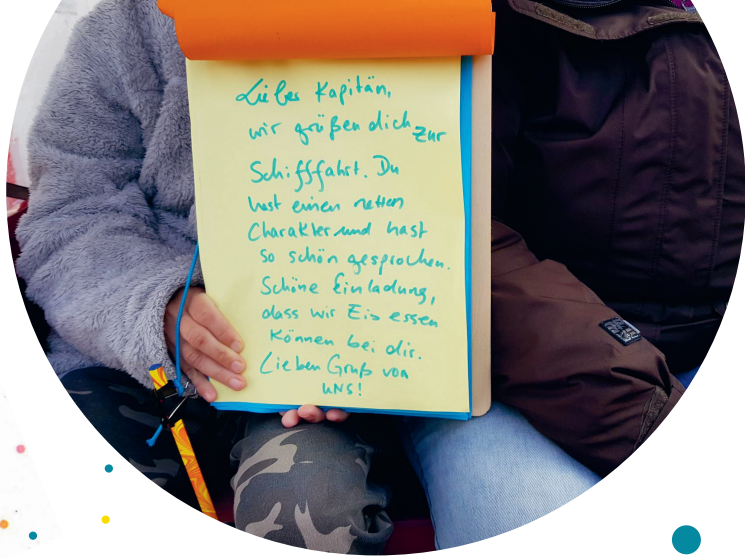 Lieber Kapitän,
wir grüßen dich zur
Schifffahrt. Du
hast einen netten
Charakter und hast
so schön gesprochen.
Schöne Einladung,
dass wir Eis essen
können bei dir.
Lieben Gruß von
UNS!